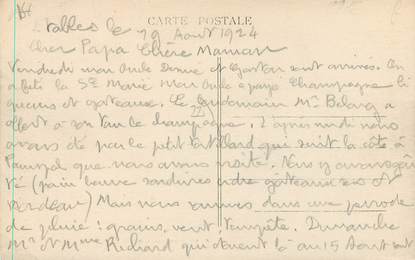 CARTE POSTALE
Etables le 19 Août 1924
Cher Papa Chère Maman
Vendredi mon Oncle et Gaston sont arrivés. On
a fêté la Ste Marie Mon Oncle a payé Champagne li
queurs et gâteaux. Le lendemain Mr a
offert à son tour le champagne. L'après midi nous
avons été par le petit qui suit la côte à
Paimpol que nous avons visité. Nous y avons goû
té (pain beurre sardines cidre gâteaux secs et
Bordeaux) Mais nous sommes dans une période
de pluie : grains, vent, tempête. Dimanche
Mr et Mme Richard qui étaient là au 15 Août sont